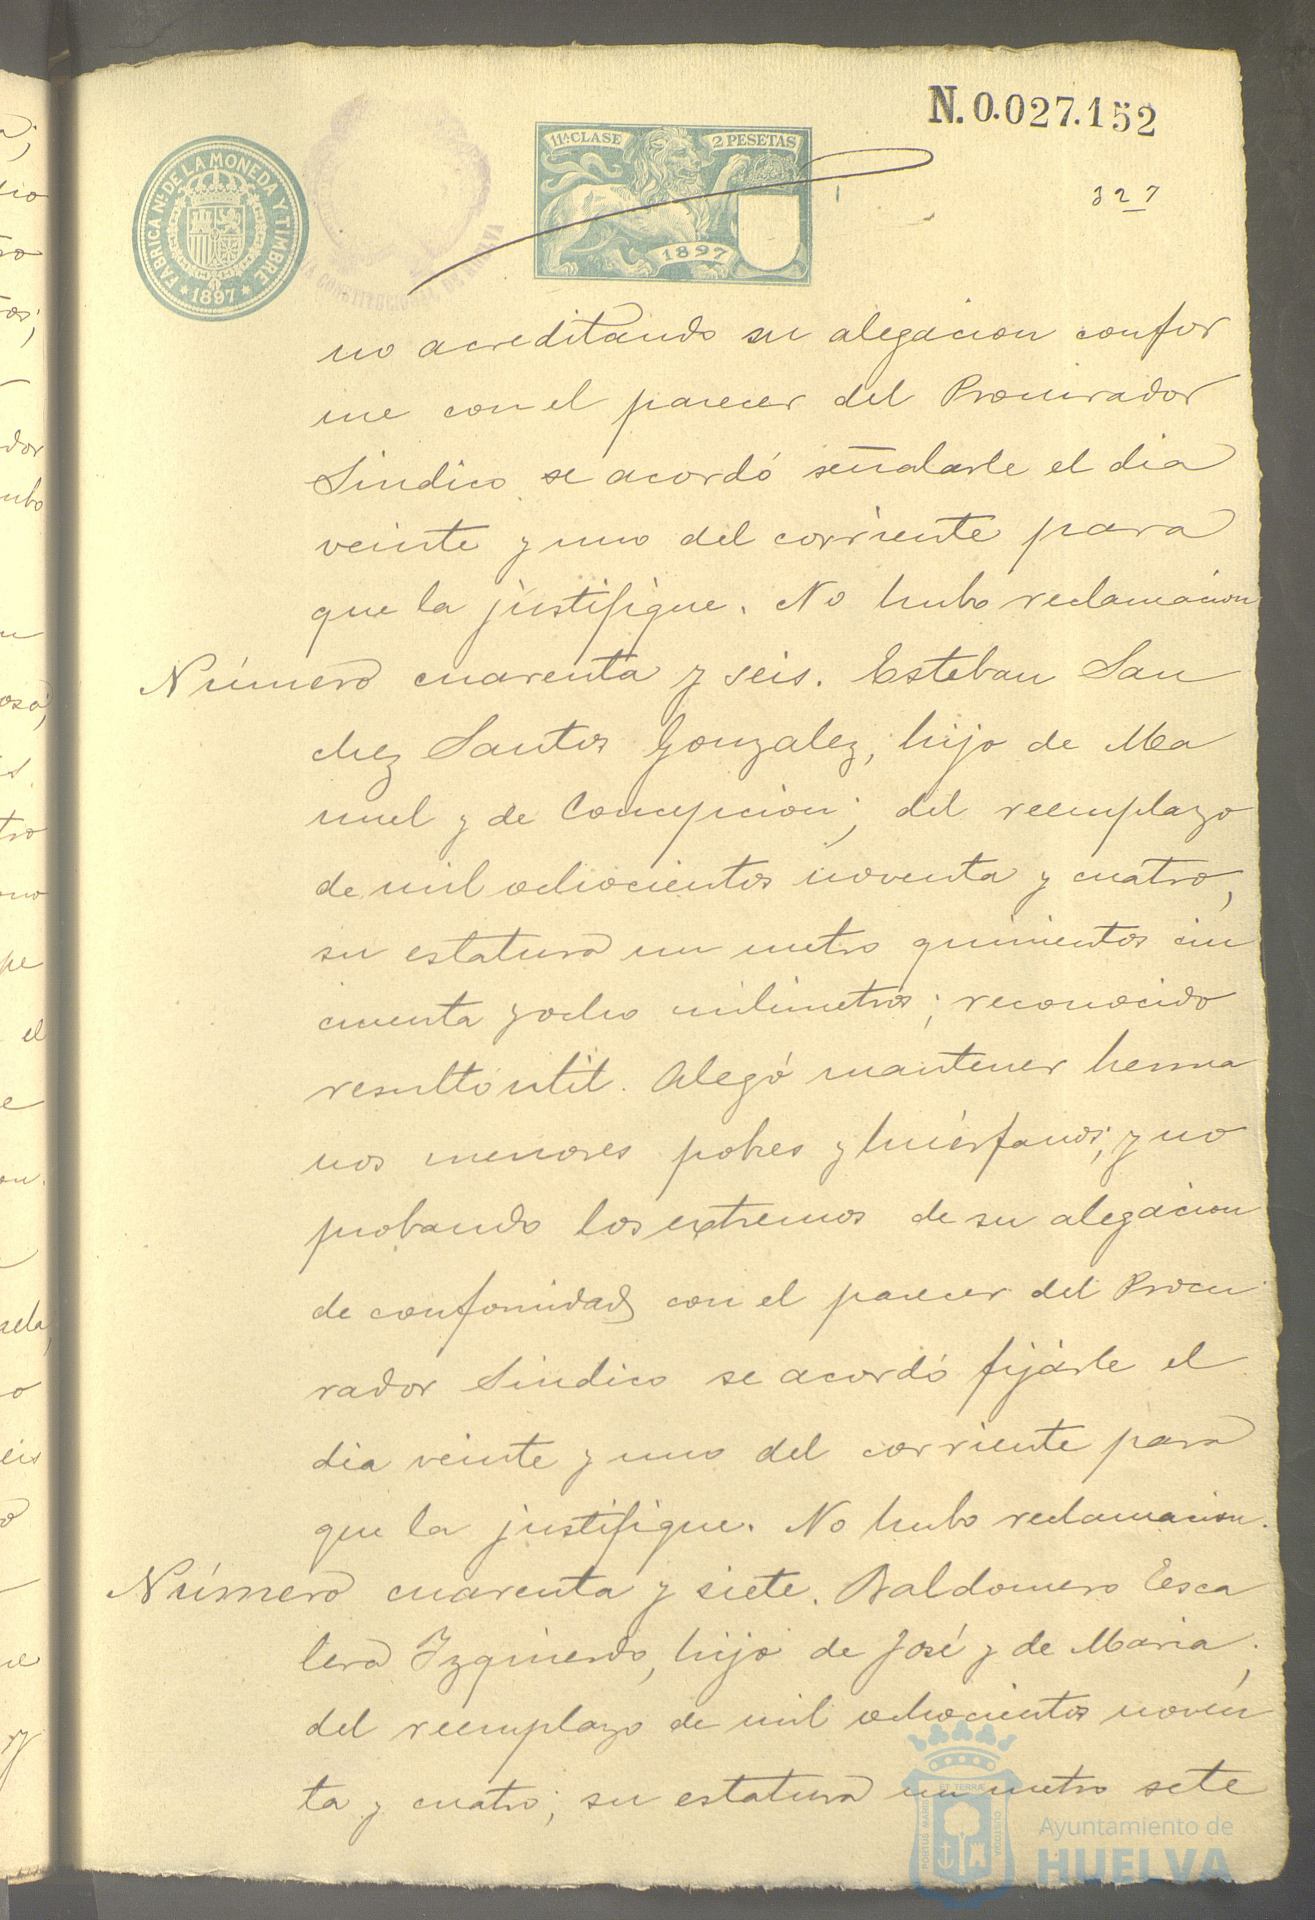 N. 0.027.152
FABRICA Nal. DE LA MONEDA Y TIMBRE
* 1897 *
CONSTITUCIONAL DE HUELVA
11ª CLASE 2 PESETAS
1897
327
no acreditando su alegacion confor
me con el parecer del Procurador
Sindico se acordó señalarle el dia
veinte y uno del corriente para
que la justifique. No hubo reclamacion
Número cuarenta y seis. Esteban San
chez Santos Gonzalez, hijo de Ma
nuel y de Concepcion; del reemplazo
de mil ochocientos noventa y cuatro,
su estatura un metro quinientos cin
cuenta y ocho milimetros; reconocido
resultó util. Alegó mantener herma
nos menores pobres y huérfanos; y no
probando los extremos de su alegacion
de conformidad con el parecer del Procu
rador Sindico se acordó fijarle el
dia veinte y uno del corriente para
que la justifique. No hubo reclamacion.
Número cuarenta y siete. Baldomero Esca
lera Izquierdo, hijo de José y de Maria;
del reemplazo de mil ochocientos noven
ta y cuatro; su estatura un metro sete
Ayuntamiento de
HUELVA